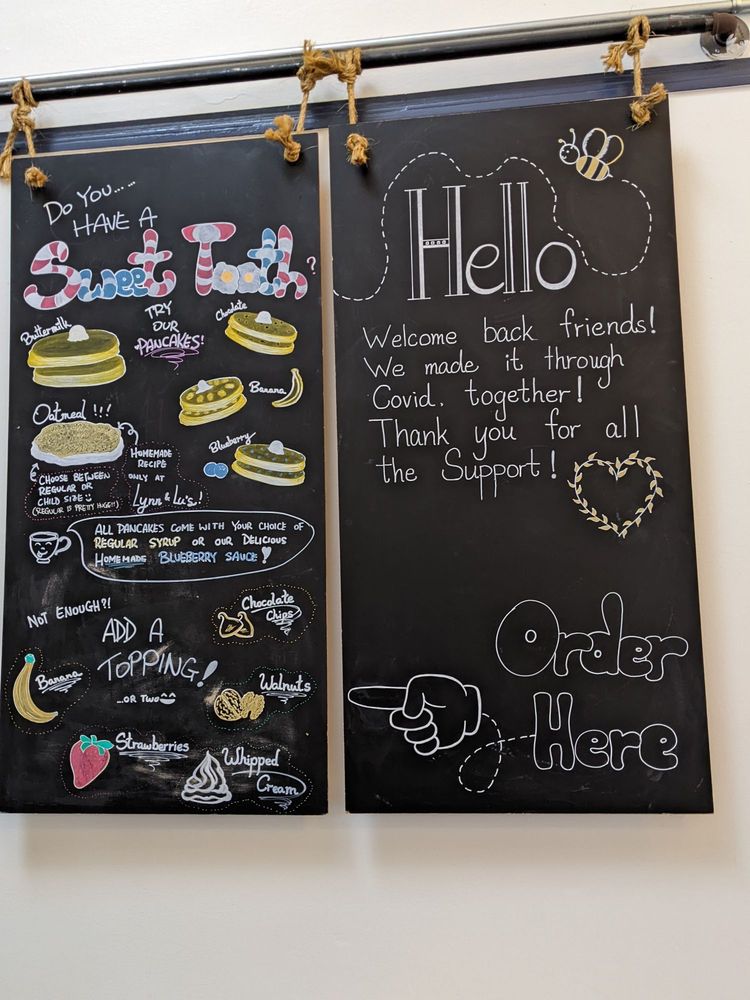 Do You.....
HAVE A
Sweet Tooth?
TRY
OUR
PANCAKES!
Buttermilk
Chocolate
Banana
Oatmeal !!!
Blueberry
CHOOSE BETWEEN
REGULAR OR
CHILD SIZE
(REGULAR IS PRETTY HUGE!!)
HOMEMADE
RECIPE
ONLY AT
Lynn & Lu's!
ALL PANCAKES COME WITH YOUR CHOICE OF
REGULAR SYRUP OR OUR DELICIOUS
HOMEMADE BLUEBERRY SAUCE!
NOT ENOUGH?!
ADD A
TOPPING!
...OR TWO
Chocolate
Chips
Banana
Walnuts
Strawberries
Whipped
Cream
Hello
Welcome back friends!
We made it through
Covid. together!
Thank you for all
the Support!
Order
Here